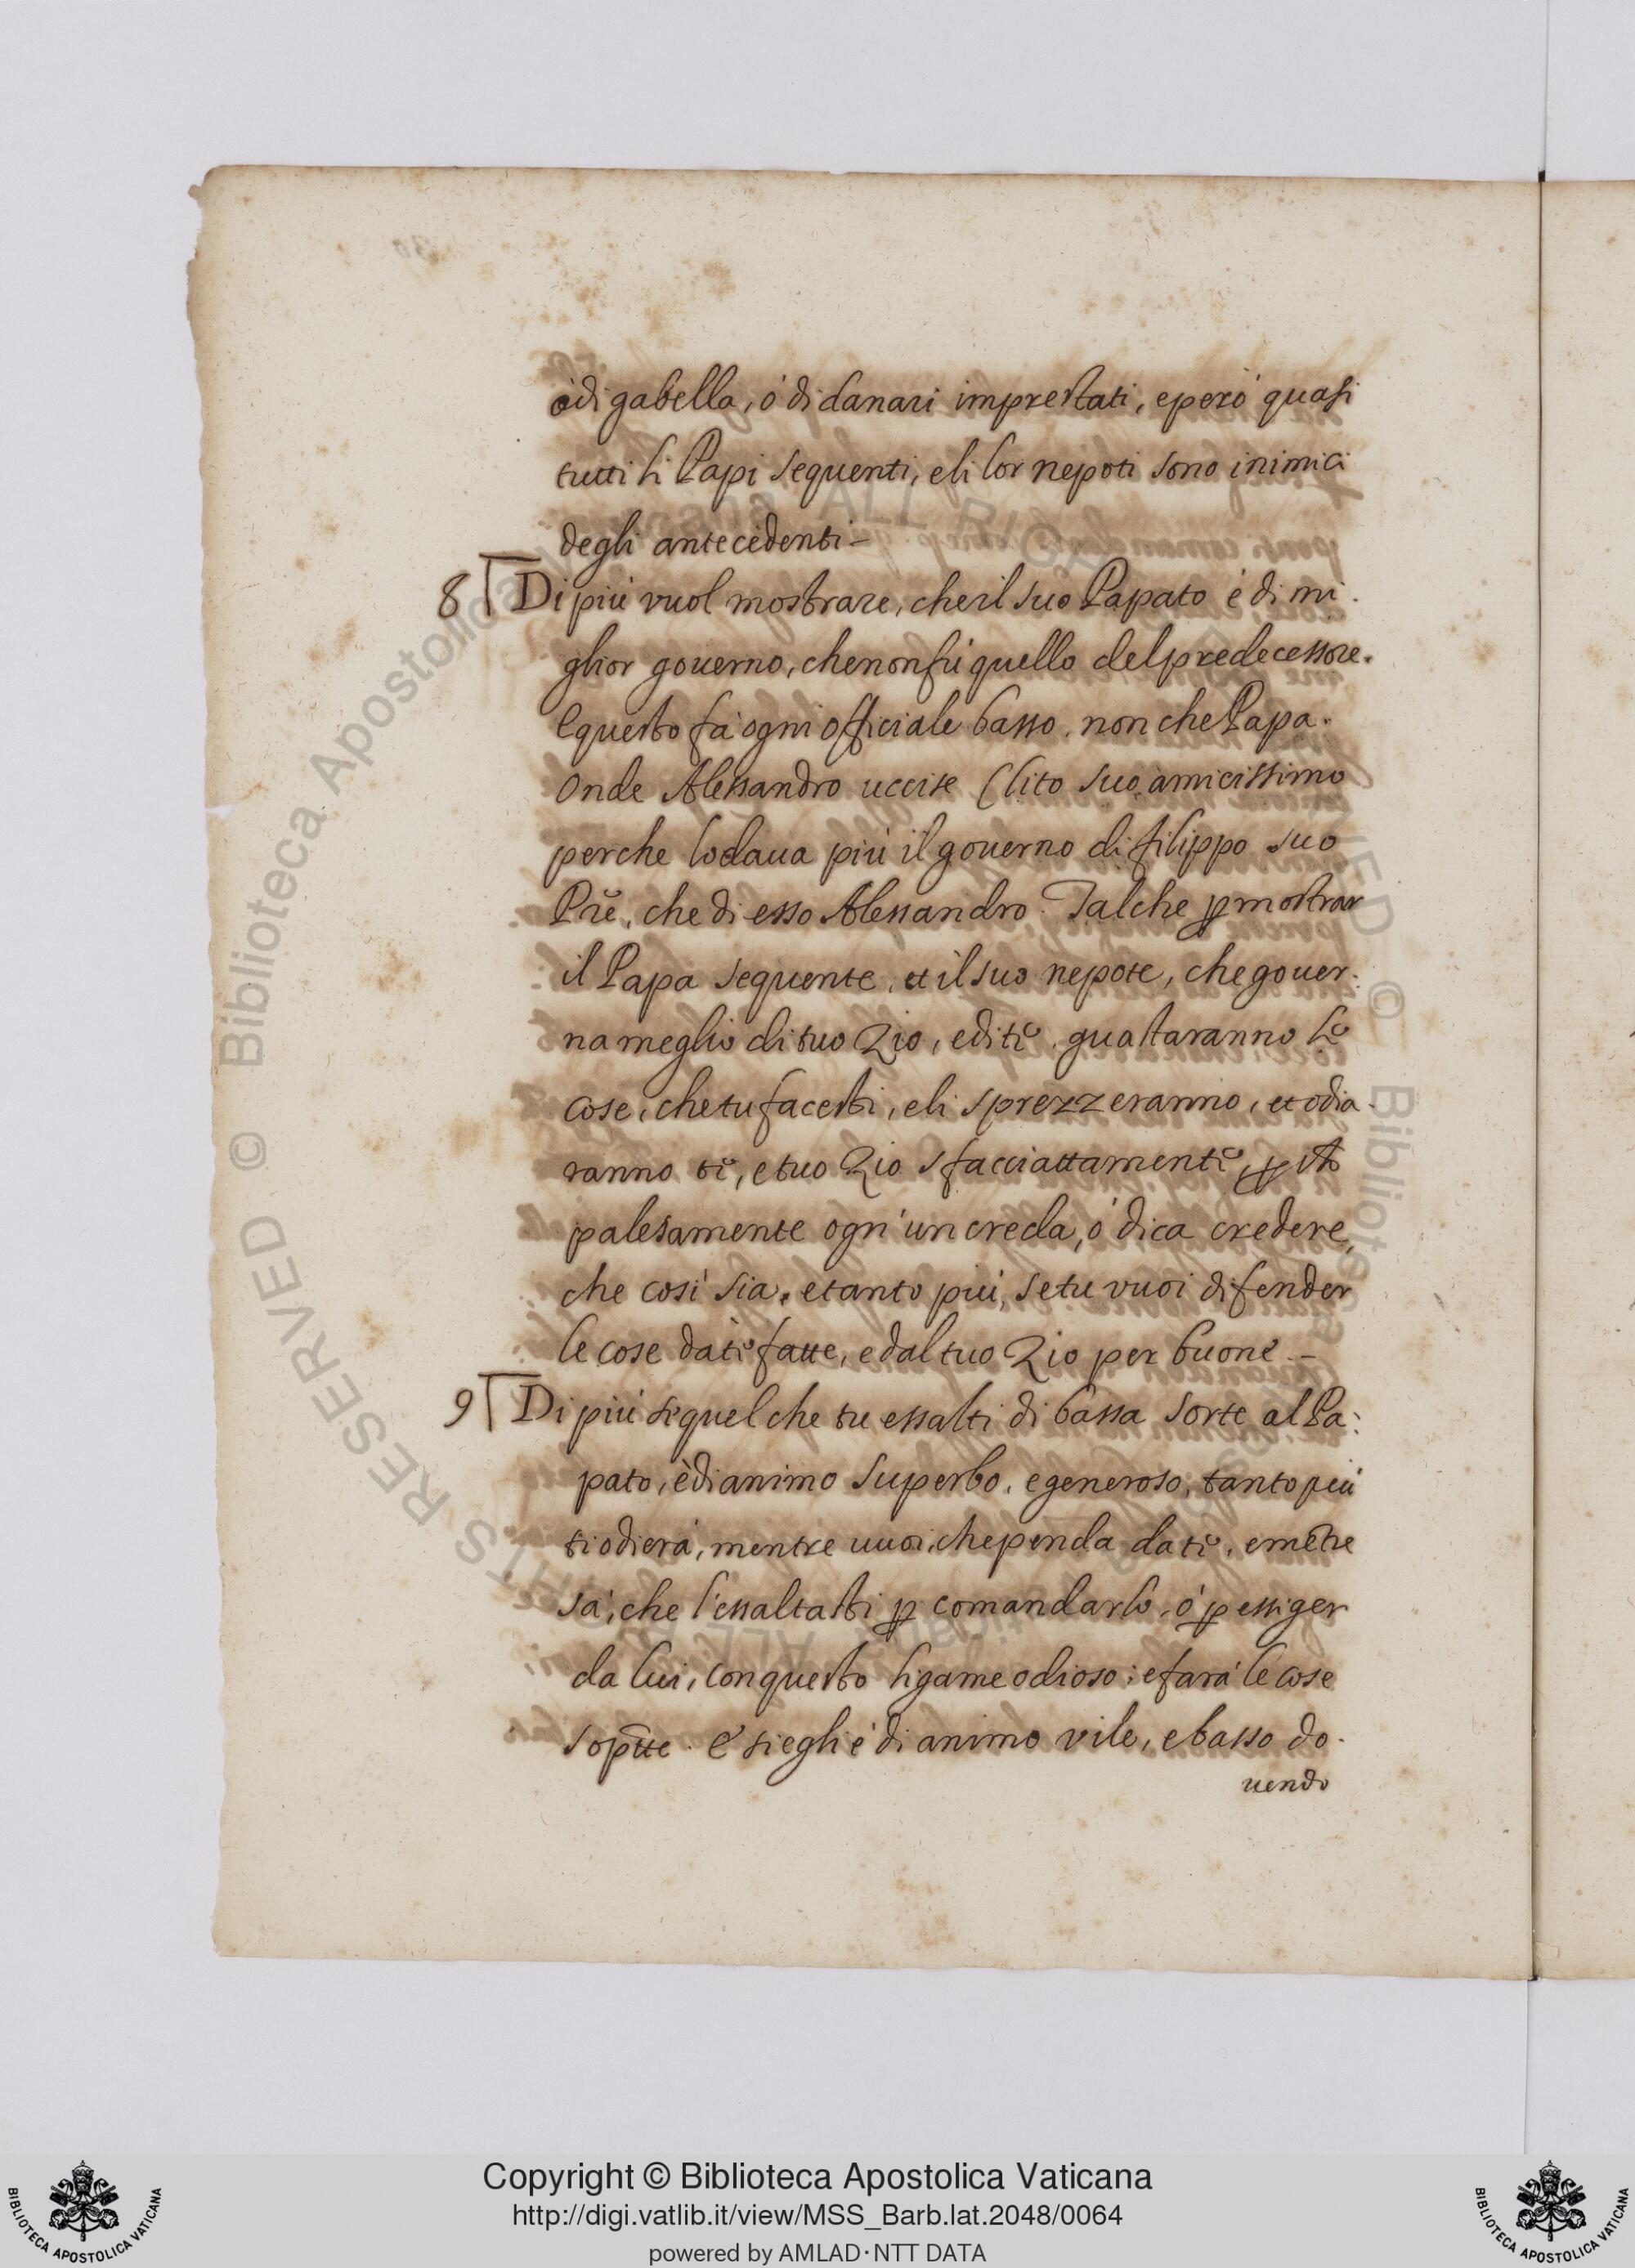 ò di gabella, ò di danari imprestati, e però quasi
tutti li Papi sequenti, e li lor nepoti sono inimici
degli antecedenti –
8 Di più vuol mostrare, che il suo Papato è di mi.
glior gouerno, che non fù quello del predecessore.
E questo fà ogni officiale basso, non che Papa.
Onde Alessandro uccise Clito suo amicissimo
perche lodaua più il gouerno di Filippo suo
Prẽ, che di esso Alessandro. Talche p mostrar
il Papa sequente, et il suo nepote, che gouer.
na meglio di tuo Zio, e di tè, guastaranno le
cose, che tu facesti, e li sprezzeranno, et odia.
ranno tè, e tuo Zio sfacciattamente, p
palesamente ogn'un creda, ò dica credere,
che così sia, e tanto più, se tu vuoi difender
le cose da tè fatte, e dal tuo Zio per buone –
9 Di più se quel che tu essalti di bassa sorte al Pa:
pato, è di animo superbo, e generoso, tanto più
ti odierà, mentre vuoi, che penda da tè, e mẽtre
sà, che l'essaltasti p comandarlo, ò p essiger
da lui, con questo ligame odioso: e farà le cose
sop̃tte. E si egli è di animo vile, e basso do.
uendo
BIBLIOTECA APOSTOLICA VATICANA
Copyright © Biblioteca Apostolica Vaticana
http://digi.vatlib.it/view/MSS_Barb.lat.2048/0064
powered by AMLAD·NTT DATA
BIBLIOTECA APOSTOLICA VATICANA